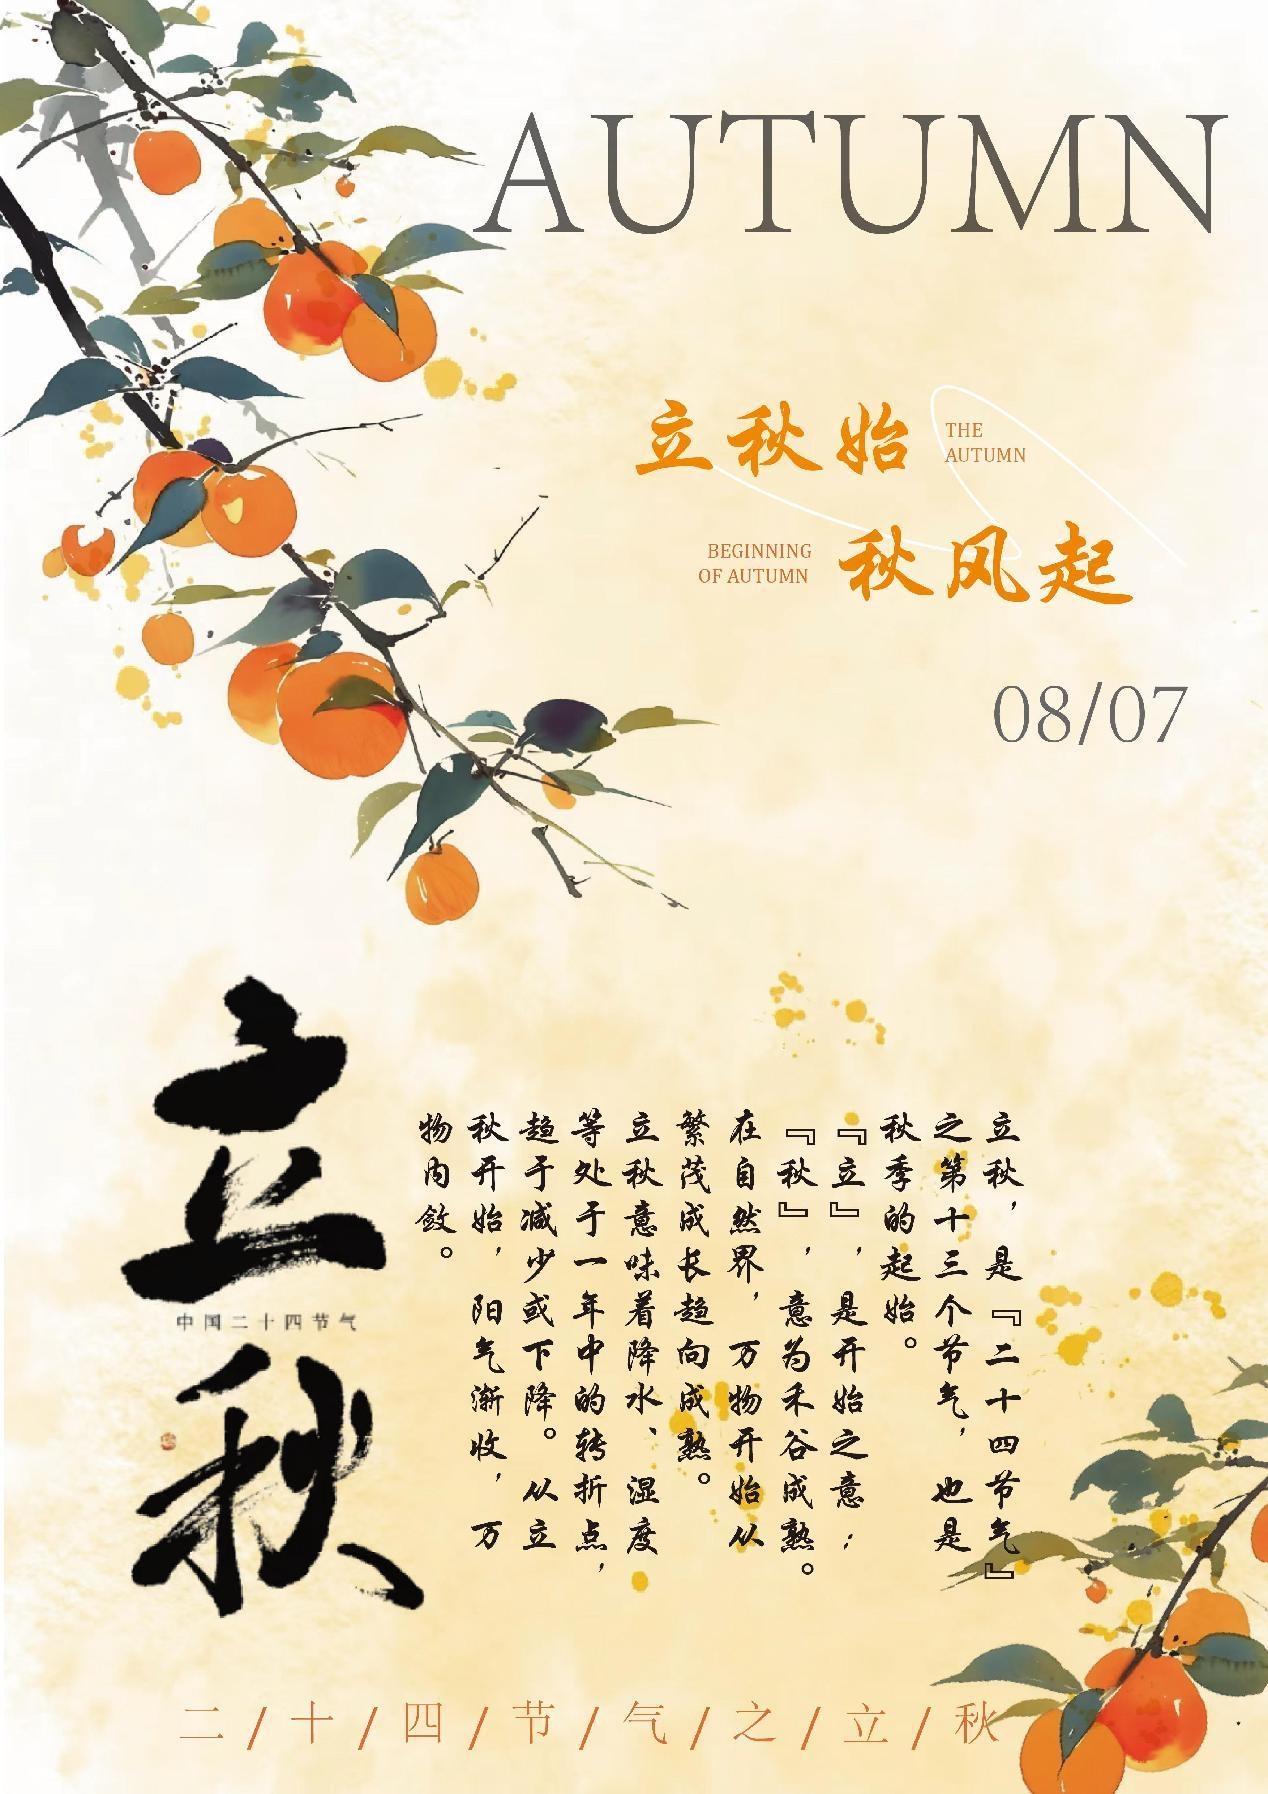 AUTUMN
立秋始
THE
AUTUMN
BEGINNING
OF AUTUMN
秋风起
08/07
立秋
中国二十四节气
立秋，是『二十四节气』
之第十三个节气，也是
秋季的起始。
『立』，是开始之意；
『秋』，意为禾谷成熟。
在自然界，万物开始从
繁茂成长趋向成熟。
立秋意味着降水、湿度
等处于一年中的转折点，
趋于减少或下降。从立
秋开始，阳气渐收，万
物内敛。
二/十/四/节/气/之/立/秋